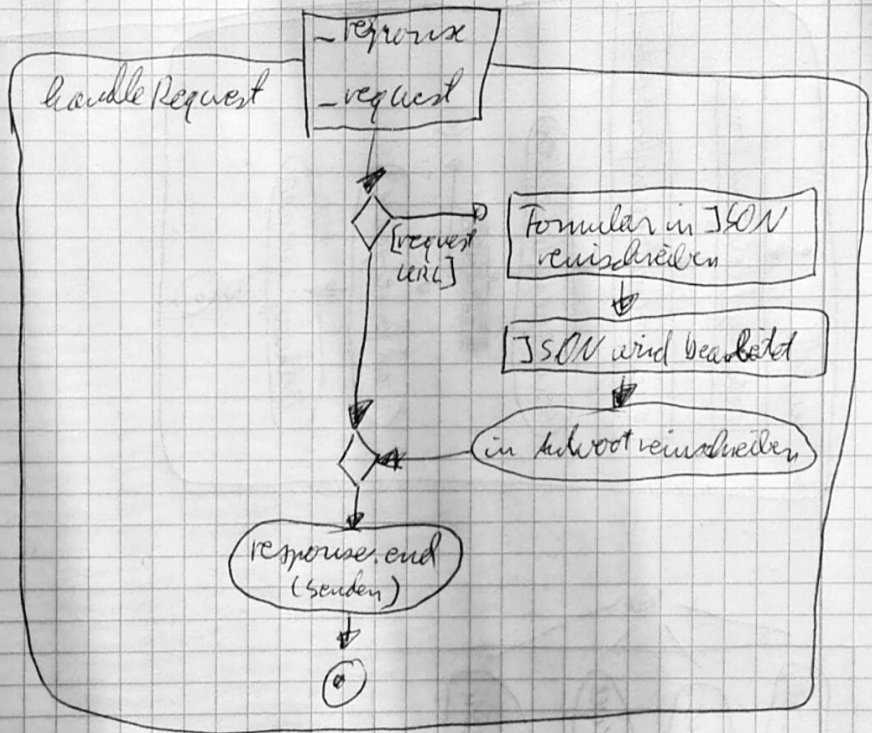 _response
_request
handleRequest
[request
URL]
Formular in JSON
reinschreiben
JSON wird bearbeitet
in Antwort reinschreiben
response.end
(senden)